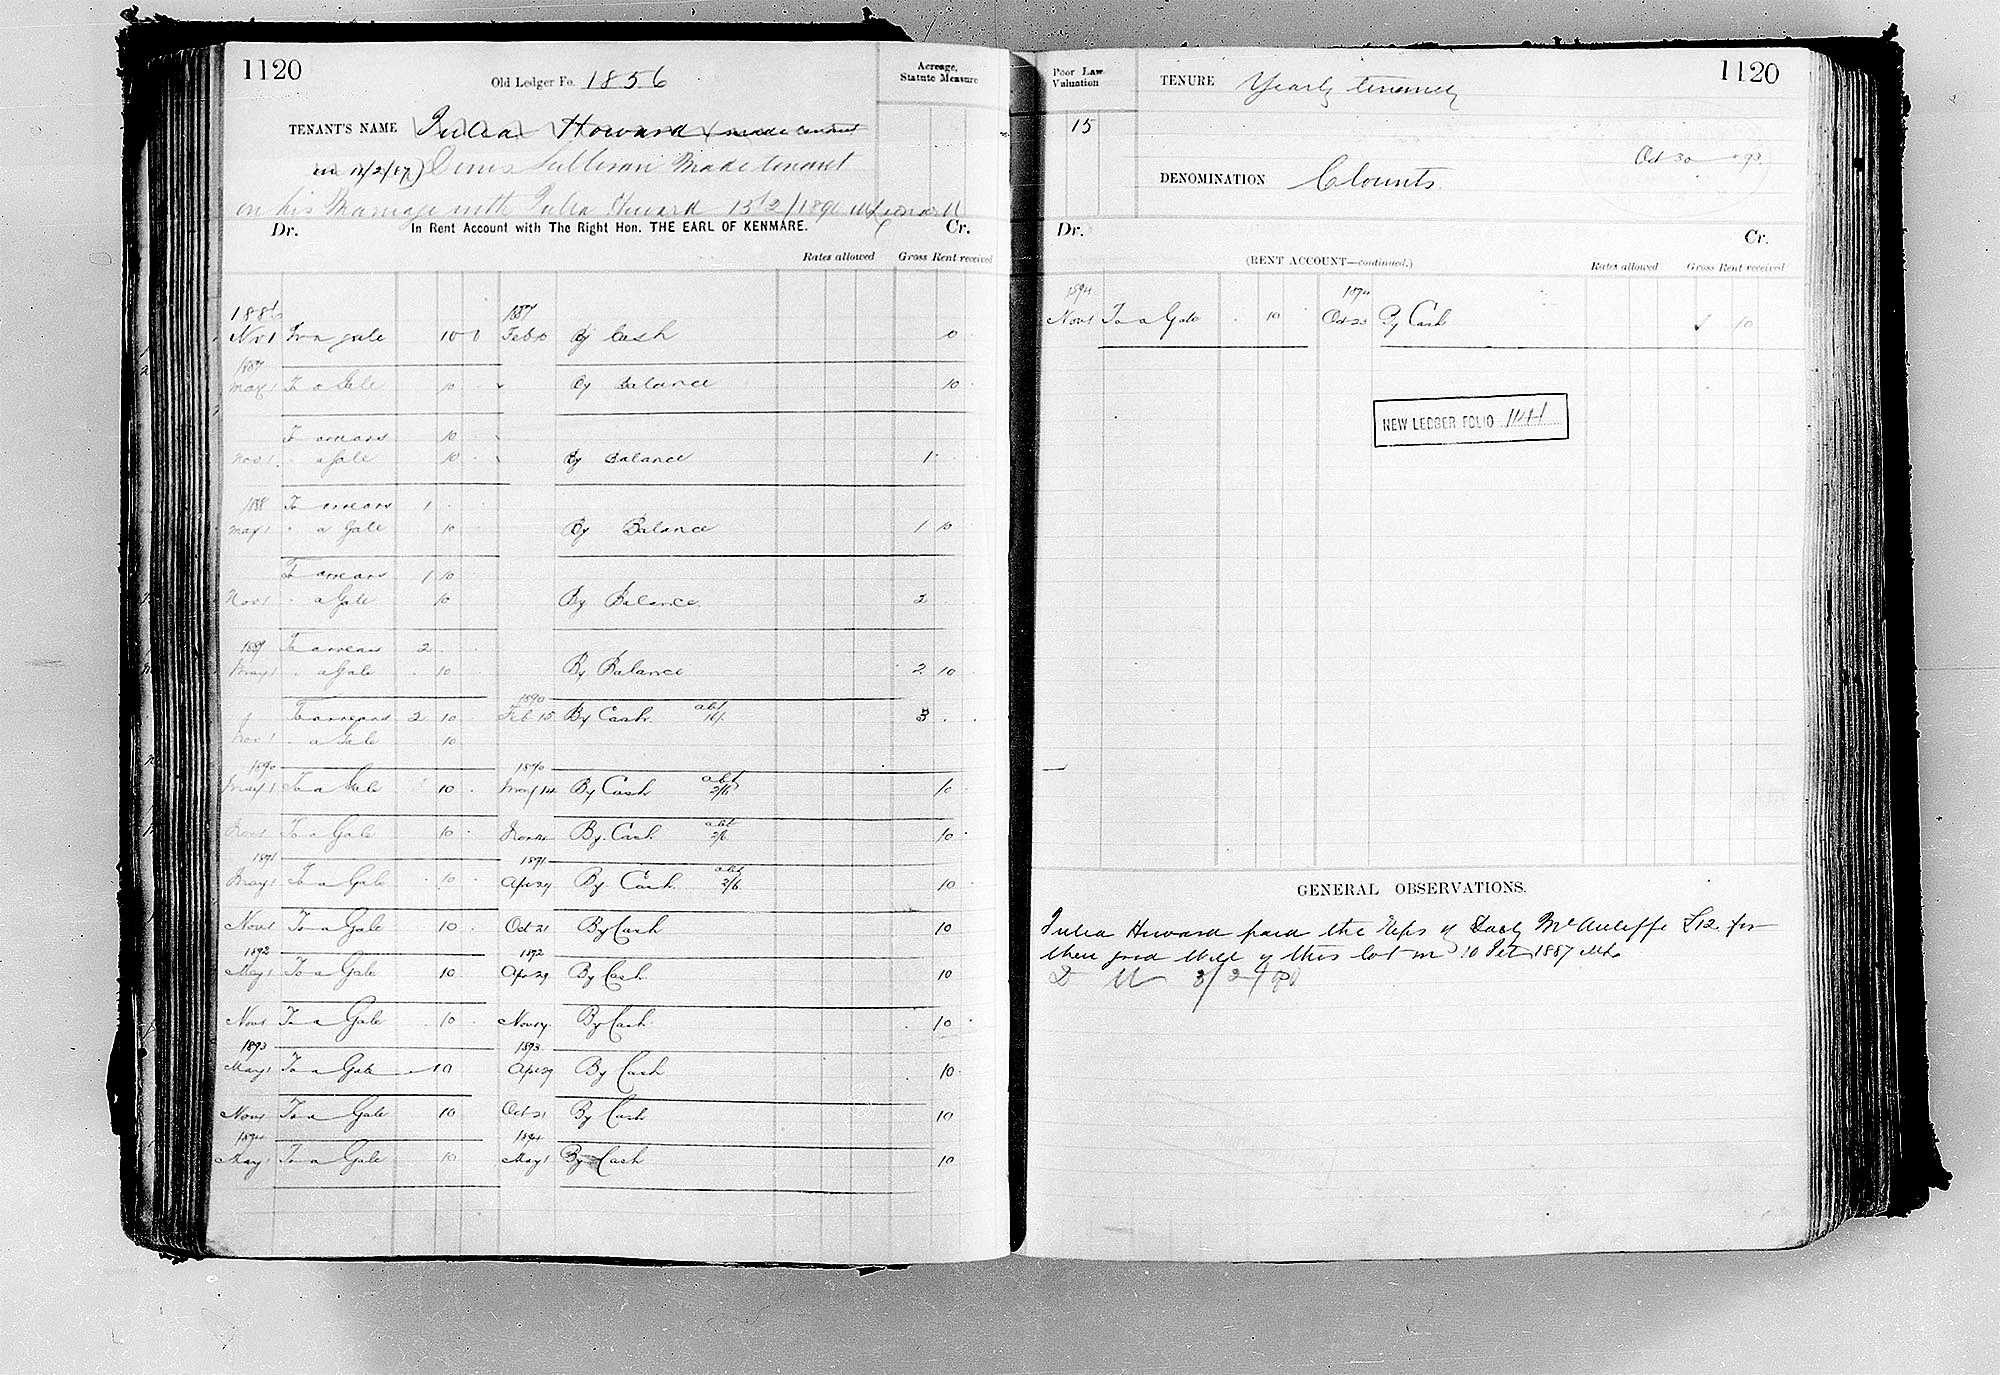 1120
Old Ledger Fo. 1856
Acreage, Statute Measure
TENANT'S NAME Julia Howard made tenant
12/2/87) Denis Sullivan Made tenant
on his Marriage with Julia Howard 15th 2/1890
Dr. In Rent Account with The Right Hon. THE EARL OF KENMARE. Cr.
Rates allowed Gross Rent received
1886 1887
Nov 1 To a gale 10 0 Feb 10 By Cash 10
1887
May 1 To a Gale 10 By Balance 10
To arrears 10
Nov 1 " a Gale 10 By Balance 1
1888 To arrears 1
May 1 " a Gale 10 By Balance 1 10
To arrears 1 10
Nov 1 " a Gale 10 By Balance 2
1889 To arrears 2
May 1 " a Gale 10 By Balance 2 10
1890
To arrears 2 10 Feb 15 By Cash abt 3
Nov 1 " a Gale 10
1890 1890
May 1 To a Gale 10 May 14 By Cash abt 2/6 10
Nov 1 To a Gale 10 Nov By Cash abt 2/6 10
1891 1891
May 1 To a Gale 10 Apr 29 By Cash abt 2/6 10
Nov 1 To a Gale 10 Oct 21 By Cash 10
1892 1892
May 1 To a Gale 10 Apr 29 By Cash 10
Nov 1 To a Gale 10 Nov By Cash 10
1893 1893
May 1 To a Gale 10 Apr 29 By Cash 10
Nov 1 To a Gale 10 Oct 21 By Cash 10
1894 1894
May 1 To a Gale 10 May 1 By Cash 10
Poor Law Valuation
TENURE Yearly tenancy
1120
15
Oct 30 93
DENOMINATION Clounts
Dr. Cr.
(RENT ACCOUNT—continued.) Rates allowed Gross Rent received
1894 1894
Nov 1 To a Gale 10 Oct 20 By Cash 10
NEW LEDGER FOLIO 1141
GENERAL OBSERVATIONS.
Julia Howard paid the Reps of McAuliffe £12 for
their good Will of this lot on 10 Feb 1887
3/2/90